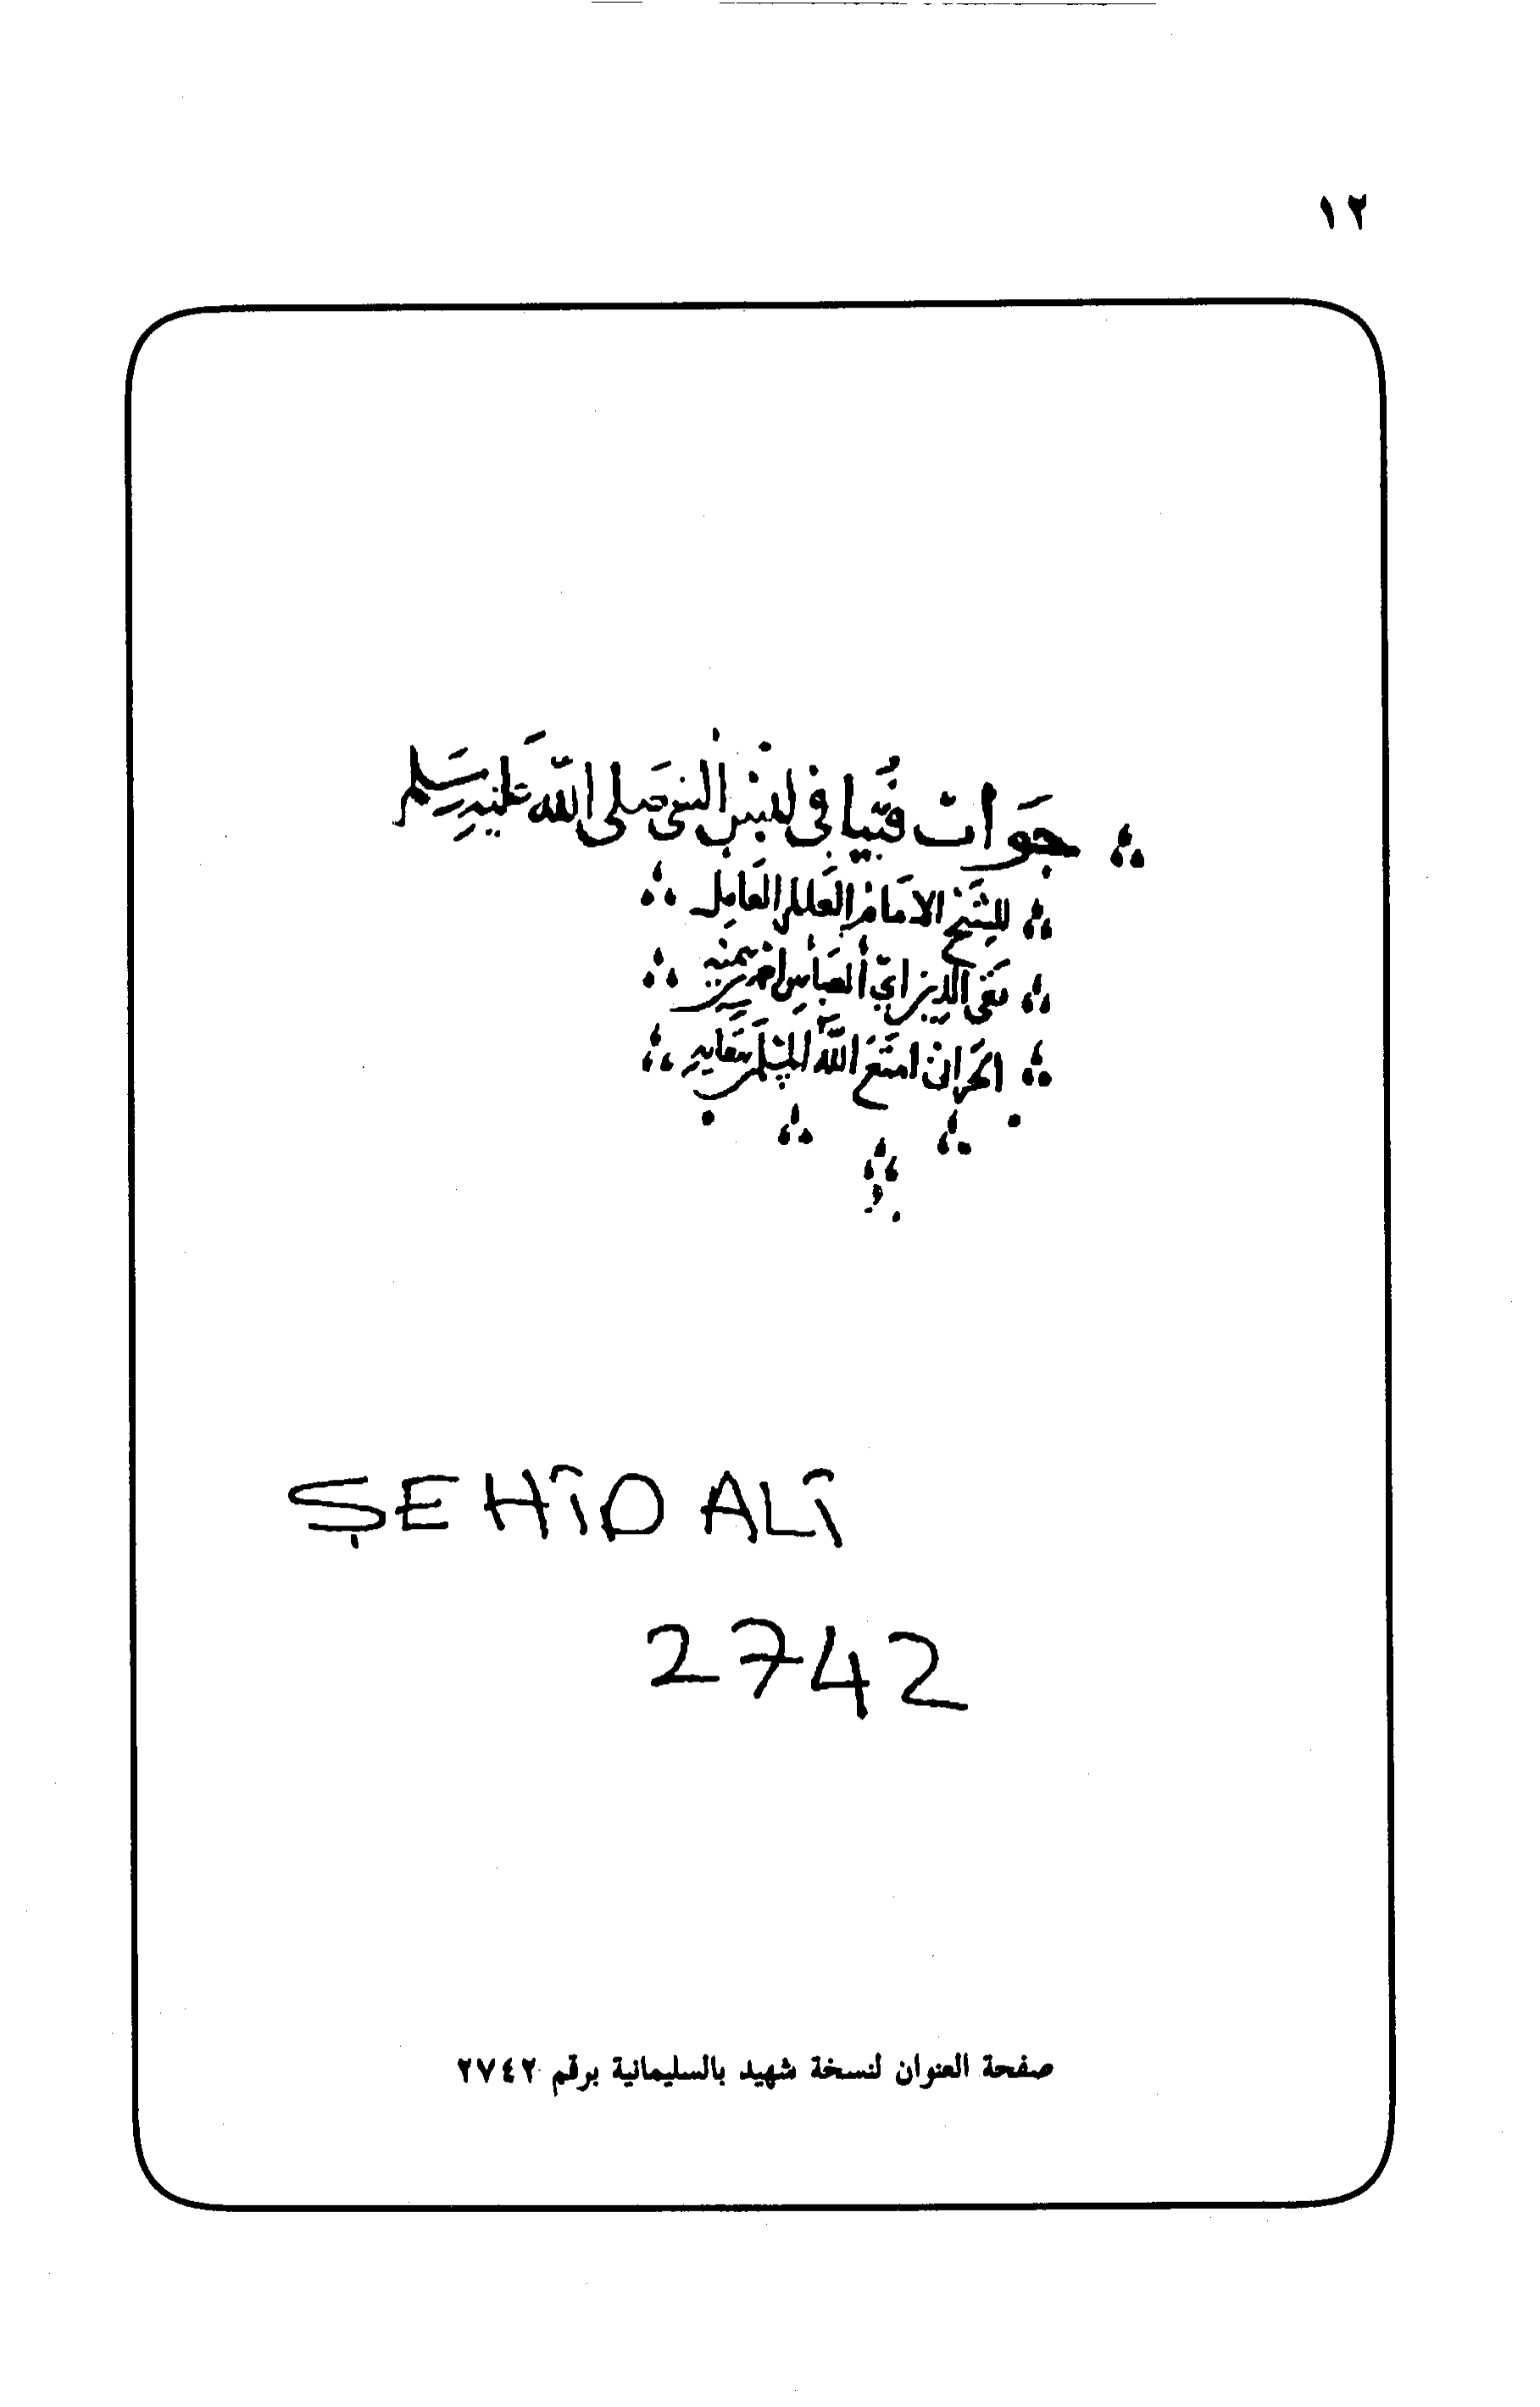 ١٢
جواب فتيا في لبس النبي صلى الله عليه وسلم
للشيخ الامام العالم العامل
تقي الدين ابي العباس احمد بن تيمية
الحراني امتع الله المسلمين ببقايه
ŞEHİD ALİ
2742
صفحة العنوان لنسخة شهيد بالسليمانية برقم ٢٧٤٢